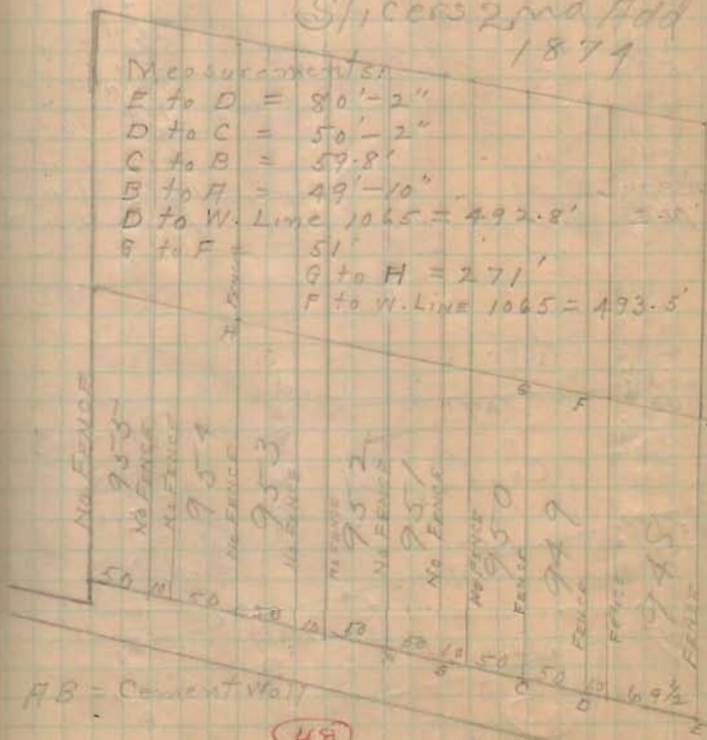 Slicers 2nd Add
1874
Measurements:
E to D = 80'-2"
D to C = 50'-2"
C to B = 59.8'
B to A = 49'-10"
D to W. Line 1065 = 492.8'
G to F = 51'
G to H = 271'
F to W. LINE 1065 = 493.5'
H, Fence
G F
NO FENCE
955
NO FENCE
NO FENCE
954
NO FENCE
953
NO FENCE
NO FENCE
952
NO FENCE
951
NO FENCE
NO FENCE
950
FENCE
949
FENCE
FENCE
948
FENCE
50 10 50 50 10 50 A 50 10 B 50 C 50 10 D 69½ E
AB = Cement Wall
48